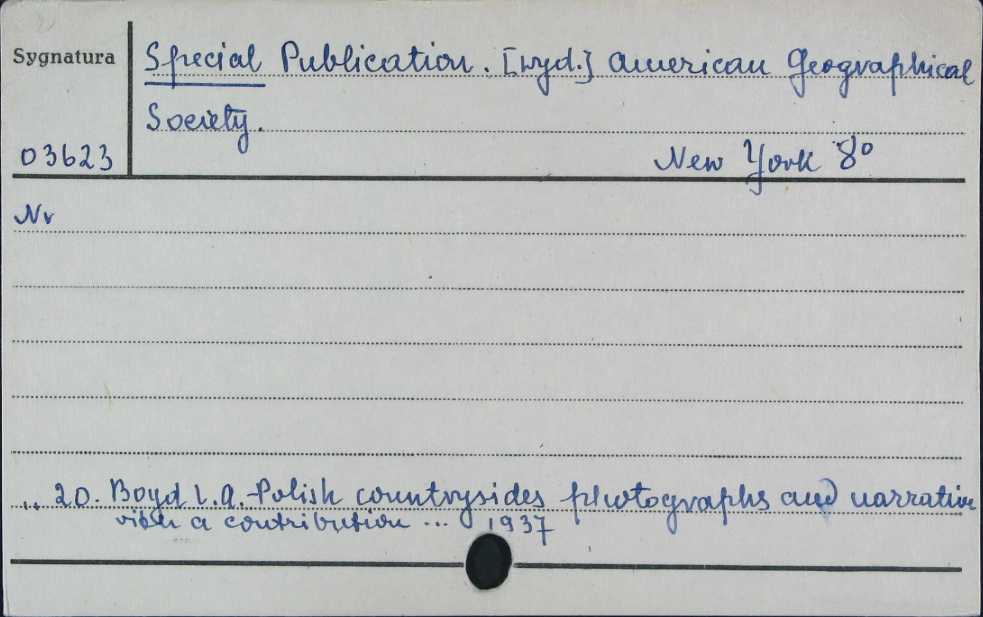 Sygnatura
Special Publication. [wyd.] American Geographical
Society.
03623
New York 8°
Nr
„ 20. Boyd L.A.-Polish countrysides photographs and narrative
with a contribution ... 1937